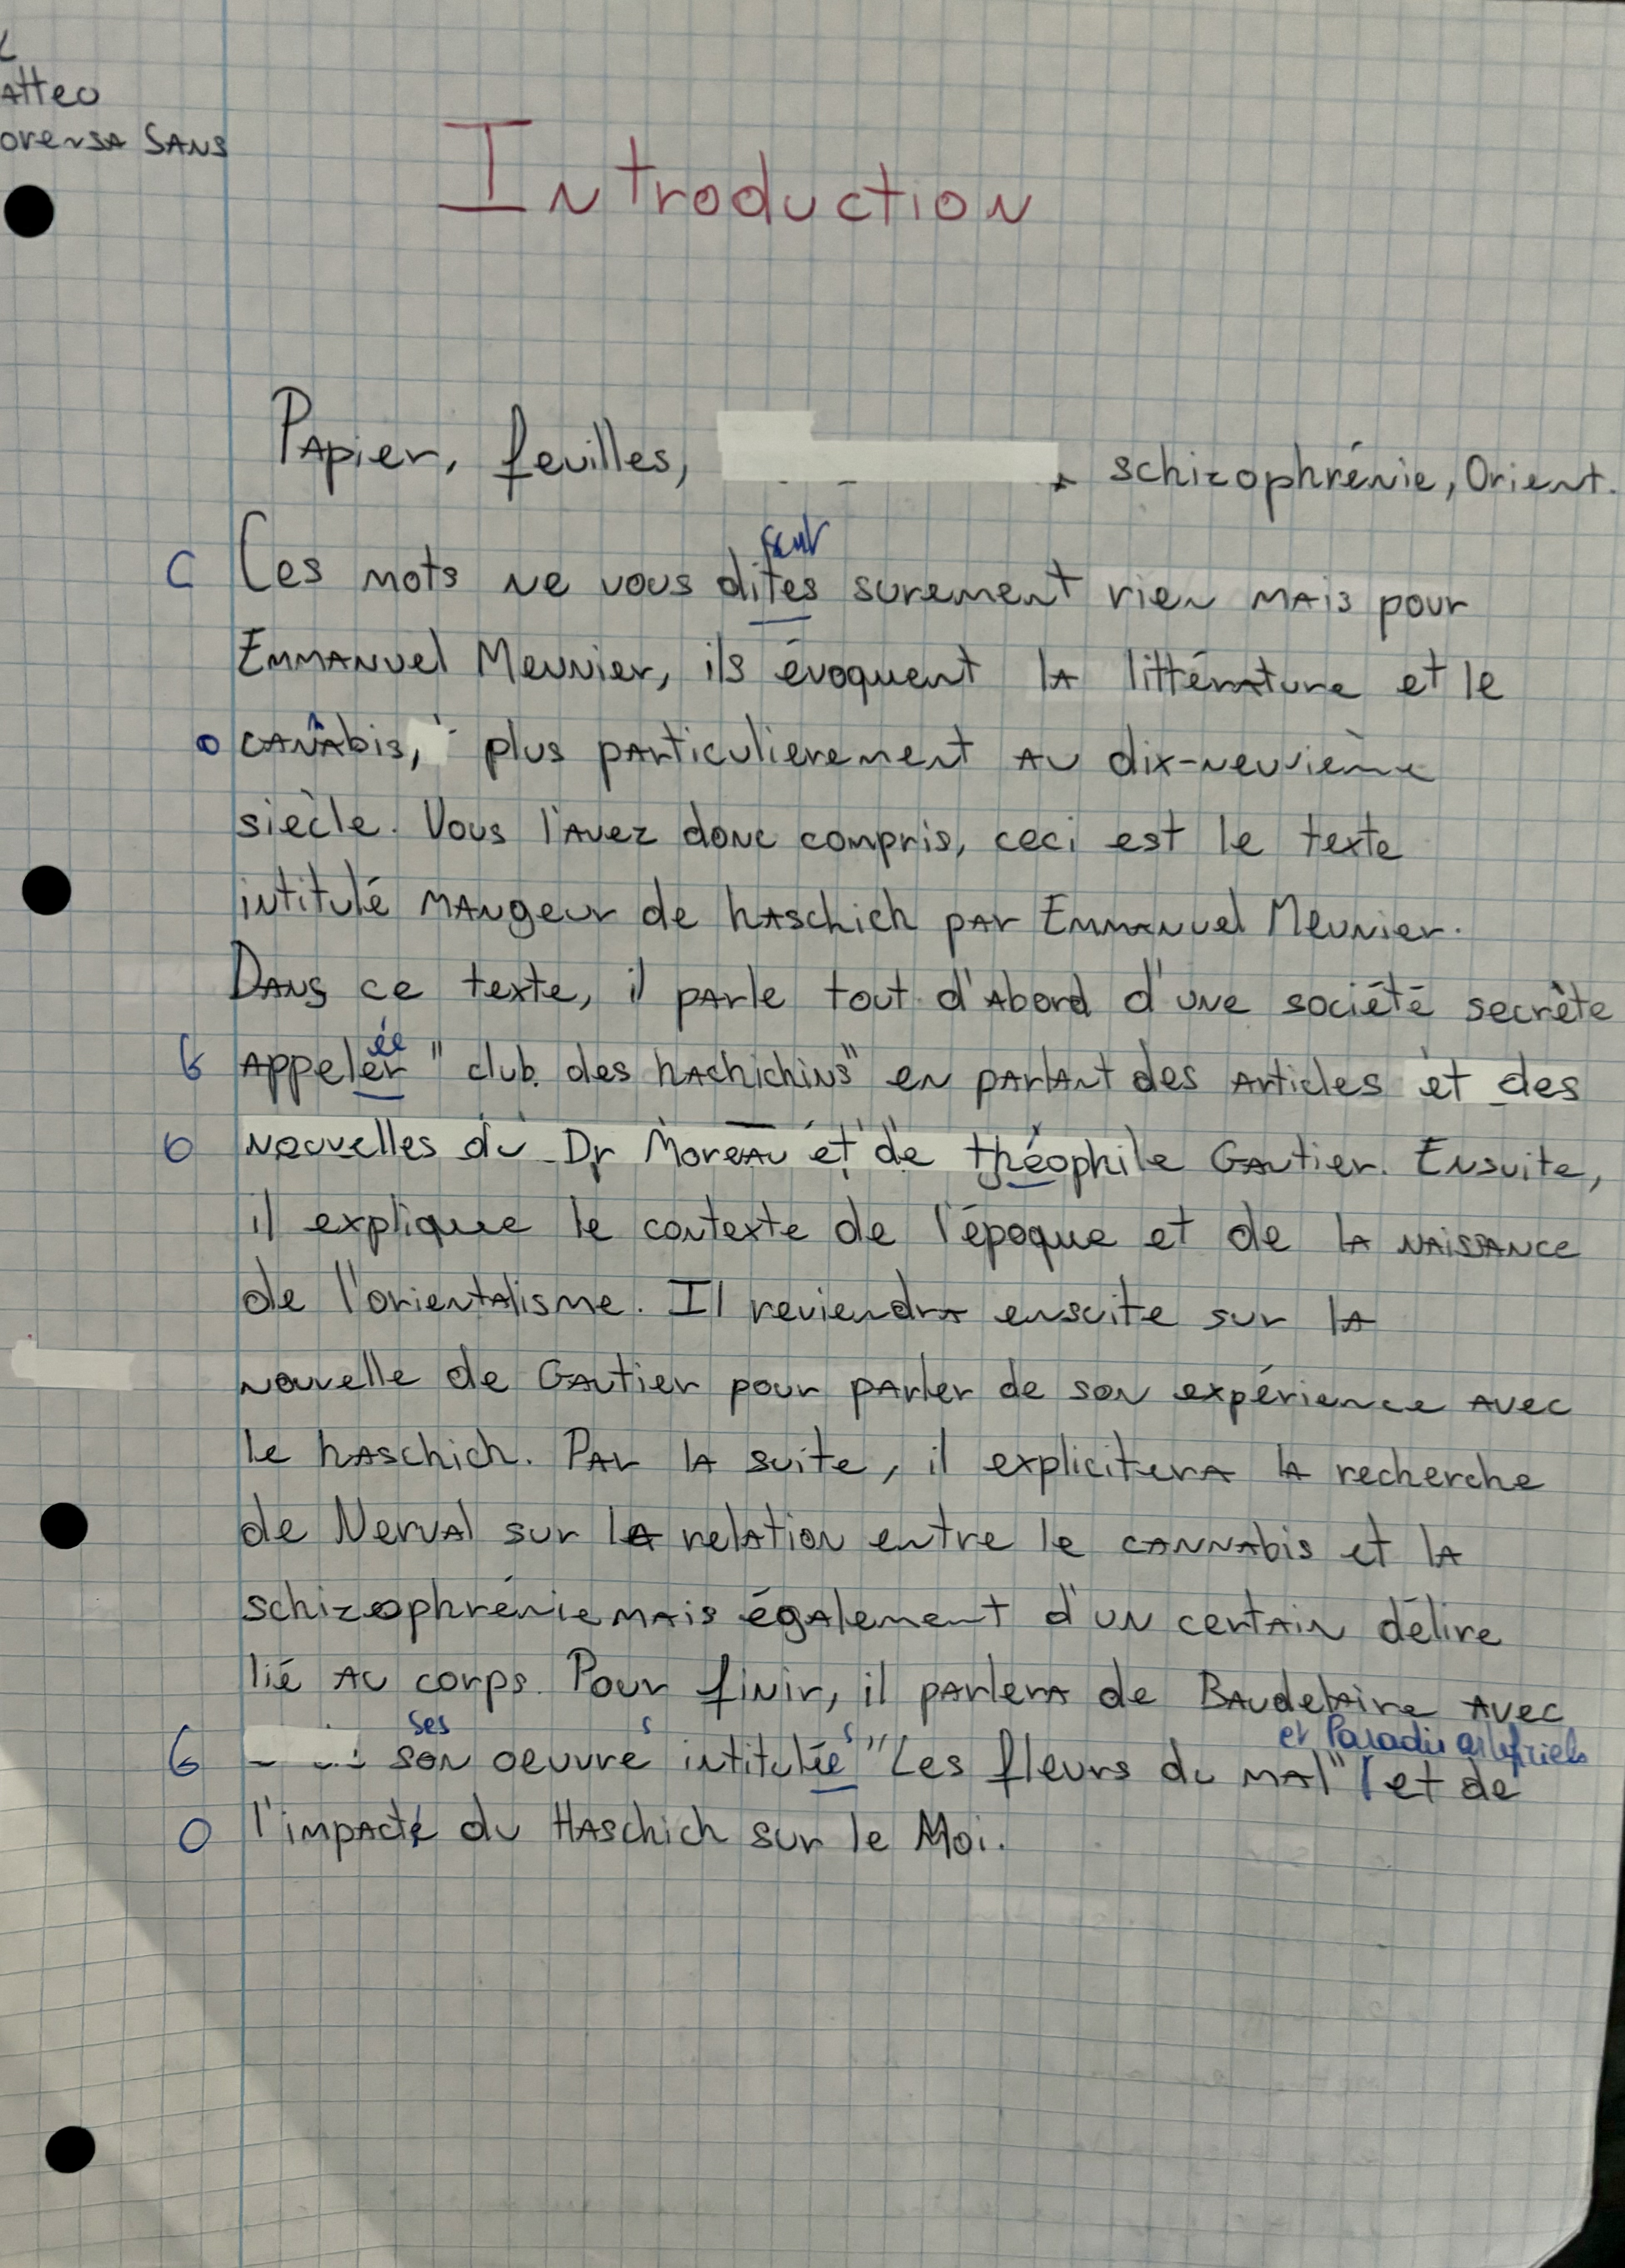 atteo
oversa Sans
Introduction
Papier, feuilles, schizophrénie, Orient.
C Ces mots ne vous dites surement rien mais pour
sent
Emmanuel Meunier, ils évoquent la littérature et le
o canabis, plus particulierement au dix-neuvième
n
siècle. Vous l'avez donc compris, ceci est le texte
intitulé mangeur de haschich par Emmanuel Meunier.
Dans ce texte, il parle tout d'abord d'une société secrète
ée
G appeler "club des hachichins" en parlant des articles et des
O nouvelles du Dr Moreau et de théophile Gautier. Ensuite,
il explique le contexte de l'époque et de la naissance
de l'orientalisme. Il reviendra ensuite sur la
nouvelle de Gautier pour parler de son expérience avec
le haschich. Par la suite, il explicitera la recherche
de Nerval sur la relation entre le cannabis et la
schizophrénie mais également d'un certain délire
lié au corps. Pour finir, il parlera de Baudelaire avec
ses s s et Paradis artificiels
G son oeuvre intitulée "Les fleurs du mal" et de
O l'impacte du Haschich sur le Moi.